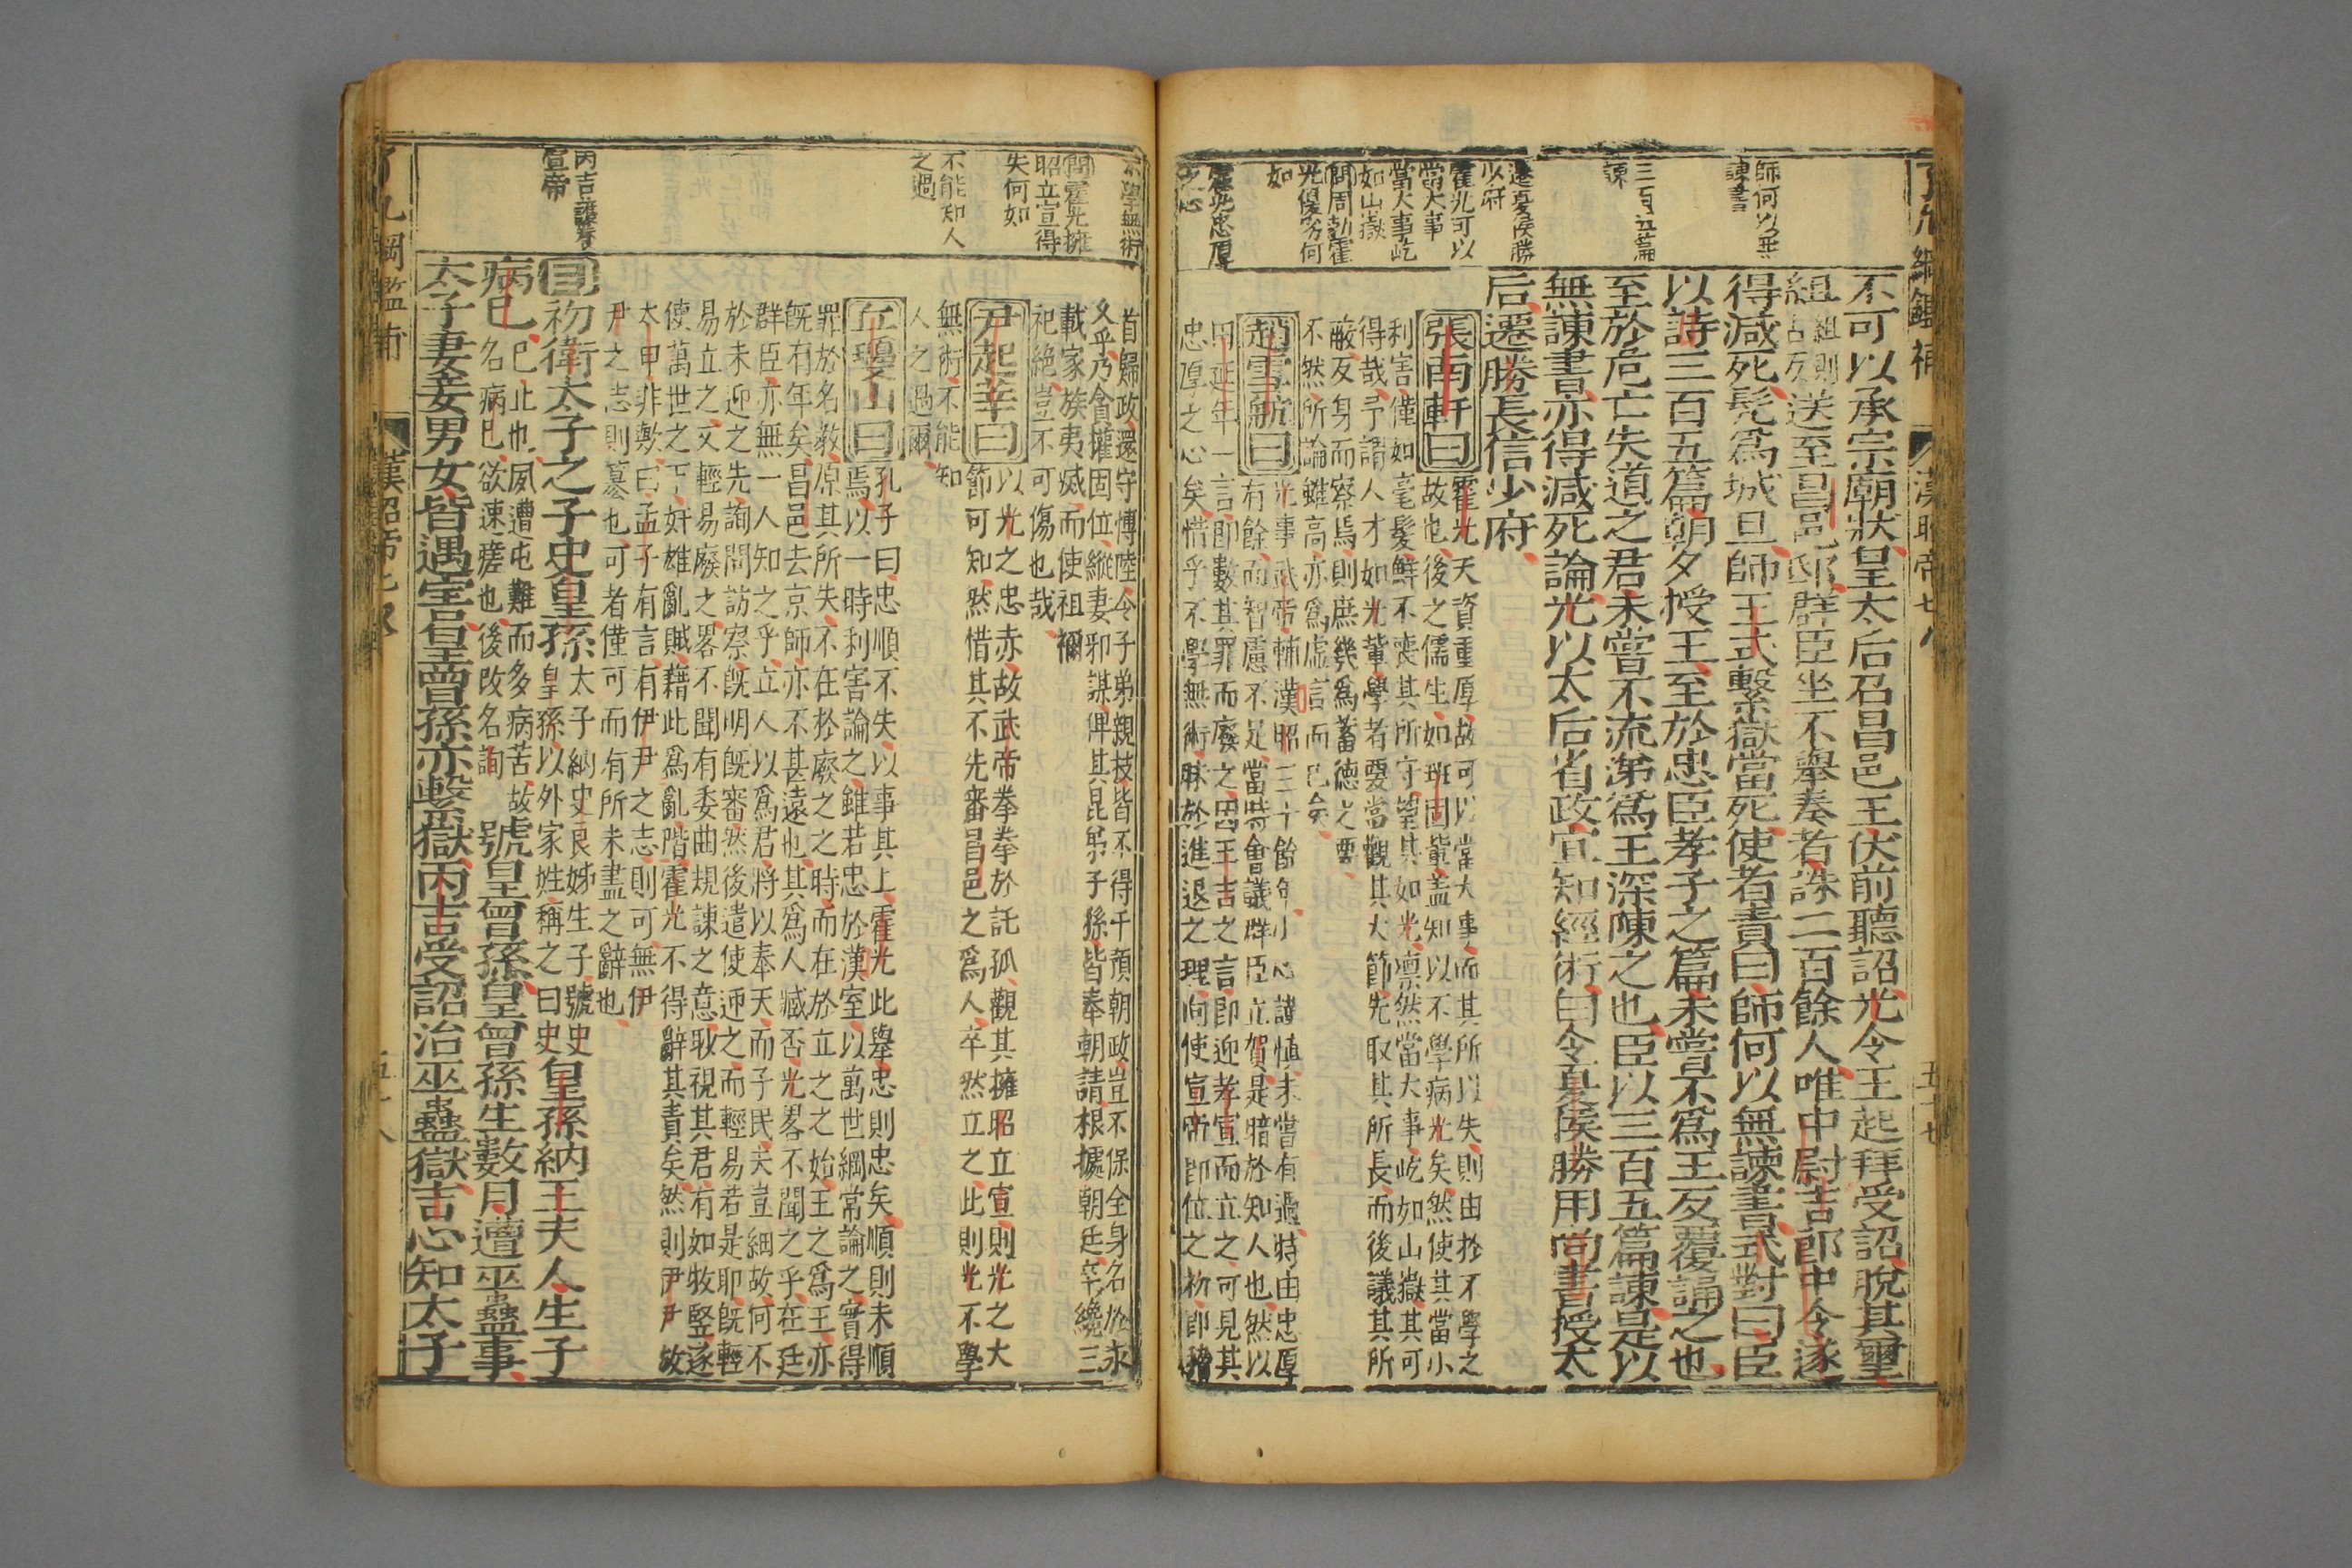 了凡綱鑑補
漢昭帝 七ノ
五十七
不可以承宗廟狀皇太后召昌邑王伏前聽詔光令王起拜受詔脫其璽
組組則
古反送至昌邑邸群臣坐不舉奏者誅二百餘人唯中尉吉郎中令遂
得減死髡為城旦師王式繫獄當死使者責曰師何以無諫書式對曰臣
以詩三百五篇朝夕授王至於忠臣孝子之篇未嘗不為王反覆誦之也
至於危亡失道之君未嘗不流涕為王深陳之也臣以三百五篇諫是以
無諫書亦得減死論光以太后省政宜知經術白令夏侯勝用尚書授太
后遷勝長信少府
張南軒曰
霍光天資重厚故可以當大事而其所以失則由於不學之
故也後之儒生如班固輩蓋知以不學病光矣然使其當小
利害僅如毫髮鮮不喪其所守望其如光凛然當大事屹如山嶽其可
得哉予謂人才如光輩學者要當觀其大節先取其所長而後議其所
蔽反身而察焉則庶幾為蓄德之要
不然所論雖高亦為虛言而已矣
趙雪航曰
光事武帝棘漢昭三十餘年小心謹慎未嘗有過特由忠厚
有餘而智慮不足當時會議群臣立賀是暗於知人也然以
田延年一言即數其罪而廢之因王吉之言即迎孝宣而立之可見其
忠厚之心矣惜乎不學無術昧於進退之理向使宣帝即位之初即稽
師何以無
諫書
三百五篇
諫
遷夏侯勝
少府
霍光可以
當大事
當大事屹
如山嶽
問周勃霍
光優劣何
如
霍光忠厚
之心
首歸政還守博陸令子弟親枝皆不得干預朝政豈不保全身名於永
久乎乃貪權固位縱妻邪謀俾其昆弟子孫皆奉朝請根據朝廷卒纔三
載家族夷滅而使祖禰
祀絕豈不可傷也哉
尹起莘曰
以光之忠赤故武帝拳拳於託孤觀其擁昭立宣則光之大
節可知然惜其不先審昌邑之為人卒然立之此則光不學
無術不能知
人之過爾
丘瓊山曰
孔子曰忠順不失以事其上霍光此舉忠則忠矣順則未順
焉以一時利害論之雖若忠於漢室以萬世綱常論之實得
罪於名教原其所失不在於廢之之時而在於立之之始王之為王亦
既有年矣昌邑去京師亦不甚遠也其為人臧否光畧不聞之乎在廷
群臣亦無一人知之乎立人以為君將以奉天而子民夫豈細故何不
於未迎之先詢問訪察既明既審然後遣使迎之而輕易若是耶既輕
易立之又輕易廢之畧不聞有委曲規諫之意耿視其君有如牧竪遂
使萬世之下奸雄亂賊藉此為亂階霍光不得辭其責矣然則伊尹放
太甲非歟曰孟子有言有伊尹之志則可無伊
尹之志則篡也可者僅可而有所未盡之辭也
目初衛太子之子史皇孫太子納史良姊生子號史
皇孫以外家姓稱之曰史皇孫納王夫人生子
病已名病已欲速瘥也後改名詢
已止也夙遭屯難而多病苦故號皇曾孫皇曾孫生數月遭巫蠱事
太子妻妾男女皆遇害皇曾孫亦繫獄丙吉受詔治巫蠱獄吉心知太子
不學無術
問霍光擁
昭立宣得
失何如
不能知人
之過
丙吉護養
宣帝
了凡綱鑑補
漢昭帝七ノ
五十八